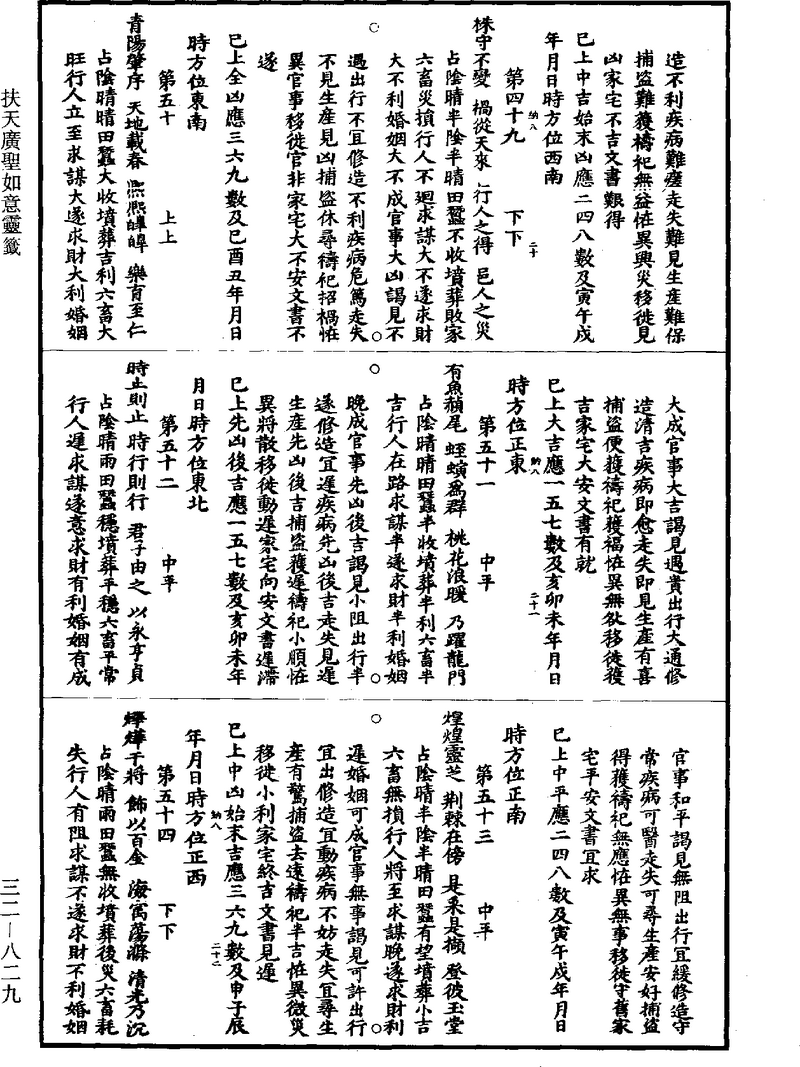 造不利疾病難瘥走失難見生產難保
捕盜難獲禱祀無益恠異興災移徙見
凶家宅不吉文書艱得
已上中吉始末凶應二四八數及寅午戌
年月日時方位西南
納八
二十
第四十九 下下
株守不變 禍從天來 行人之得 邑人之災
占陰晴半陰半晴田蠶不收墳葬敗家
六畜災損行人不迴求謀大不遂求財
大不利婚姻大不成官事大凶謁見不
遇出行不宜修造不利疾病危篤走失
不見生產見凶捕盜休尋禱祀招禍恠
異官事移徙官非家宅大不安文書不
遂
已上全凶應三六九數及巳酉丑年月日
時方位東南
第五十 上上
青陽肇序 天地載春 熙熙皥皥 樂育至仁
占陰晴晴田蠶大收墳葬吉利六畜大
旺行人立至求謀大遂求財大利婚姻
大成官事大吉謁見遇貴出行大通修
造清吉疾病即愈走失即見生產有喜
捕盜便獲禱祀獲福恠異無欲移徙獲
吉家宅大安文書有就
已上大吉應一五七數及亥卯未年月日
時方位正東
納八
二十一
第五十一 中平
有魚頳尾 蛭螾為群 桃花浪暖 乃躍龍門
占陰晴晴田蠶半收墳葬半利六畜半
吉行人在路求謀半遂求財半利婚姻
晚成官事先凶後吉謁見小阻出行半
遂修造宜遲疾病先凶後吉走失見遲
生產先凶後吉捕盜獲遲禱祀小順恠
異將散移徙動遲家宅向安文書遲滯
已上先凶後吉應一五七數及亥卯未年
月日時方位東北
第五十二 中平
時止則止 時行則行 君子由之 以永亨貞
占陰晴雨田蠶穩墳葬平穩六畜平常
行人遲求謀遂意求財有利婚姻有成
官事和平謁見無阻出行宜緩修造守
常疾病可醫走失可尋生產安好捕盜
得獲禱祀無應恠異無事移徙守舊家
宅平安文書宜求
已上中平應二四八數及寅午戌年月日
時方位正南
第五十三 中平
煌煌靈芝 荆棘在傍 是采是擷 登彼玉堂
占陰晴半陰半晴田蠶有望墳葬小吉
六畜無損行人將至求謀晚遂求財利
遲婚姻可成官事無事謁見可許出行
宜出修造宜動疾病不妨走失宜尋生
產有驚捕盜去遠禱祀半吉恠異微災
移徙小利家宅終吉文書見遲
已上中凶始末吉應三六九數及申子辰
年月日時方位正西
納八
二十二
第五十四 下下
燁燁干將 飾以百金 海寓蕩滌 清光乃沉
占陰晴雨田蠶無收墳葬後災六畜耗
失行人有阻求謀不遂求財不利婚姻
扶天廣聖如意靈籤
三二—八二九